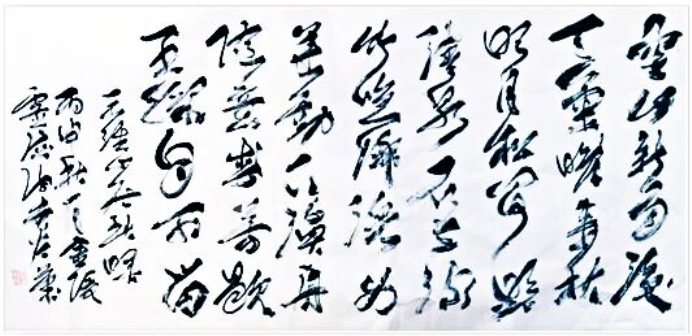 空山新雨後
天氣晚來秋
明月松間照
清泉石上流
竹喧歸浣女
蓮動下漁舟
隨意春芳歇
王孫自可留
王維山居秋暝
丙申秋月金陵